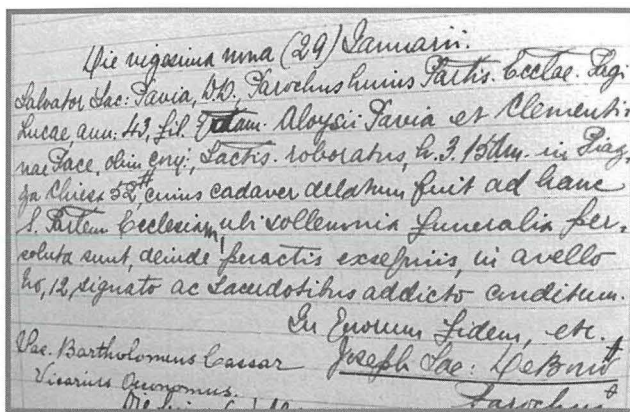 Die vigesima nona (29) Januarii.
Salvator Sac: Pavia, D.D., Parochus huius Partis. Ecclae. Pagi
Lucae, ann: 43, fil. Aloysii Pavia et Clementi-
nae Pace, olim conj:, Sactis. roboratus, h. 3. 15 Am. in Piaz-
za Chiesa 52 cuius cadaver delatum fuit ad hanc
S. Partem Ecclesiam, ubi sollemnia funeralia per-
soluta sunt, deinde, peractis exsequiis, in avello
No, 12, signato ac Sacerdotibus addicto conditum.
In Quorum Fidem, etc.
Vac. Bartholomeus Cassar Joseph Sac: DeBono
Vicarius Oeconomus. Parochus